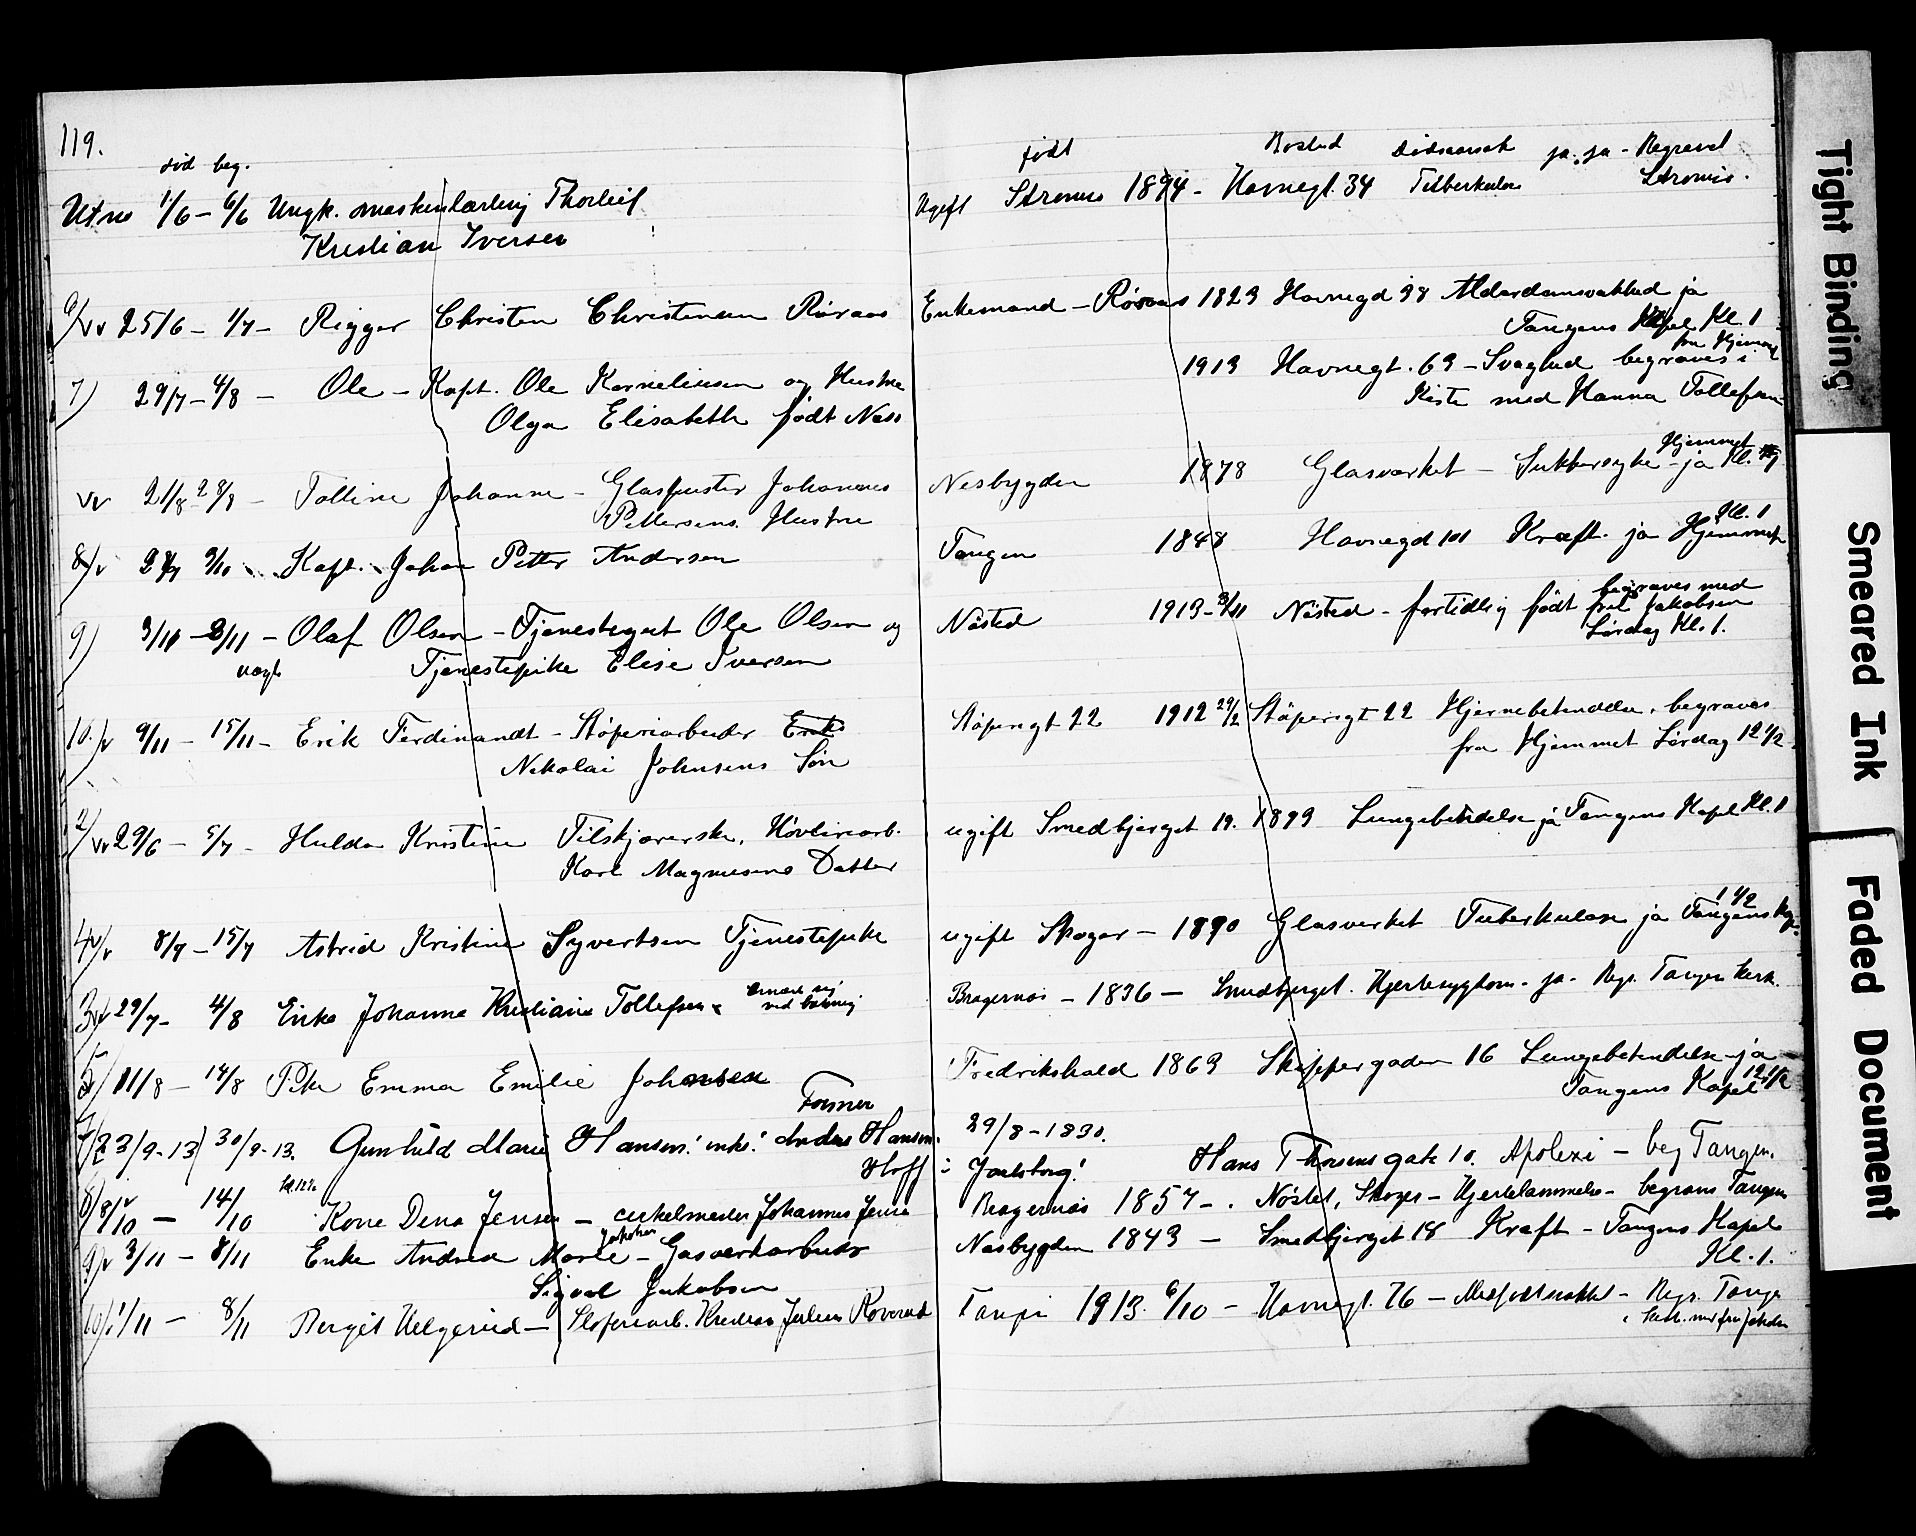 119.
død beg. født Bosted Dødsaarsak ja. ja - Begravet
1/6 - 6/6 Ungk. maskinlærling Thorleif Ugift Strømsø 1894 - Havnegt. 34 Tuberkulose Strømsø.
Kristian Iversen
6/ 25/6 - 1/7 - Rigger Christen Christensen Røraas Enkemand - Røraas 1823 Havnegd 98 Alderdomsvakhed ja
Tangens Kapel Kl. 1
fra Hjemmet
7) 29/7 - 4/8 - Ole - Kapt. Ole Korneliusen og Hustru 1913 Havnegt. 63 - Svaghed begraves i
Olga Elisabeth født Næss Kiste med Hanna Tollefsen
Hjemmet
21/8 - 28/8 - Tolline Johanne - Glaspuster Johannes Nesbygden 1878 Glasværket - Sukkersyke - ja Kl. 1
Pettersens Hustru
Kl. 1
8/ Kapt. Johan Petter Andersen Tangen 1848 Havnegd 101 Kræft. ja Hjemmet
begraves med
9) 3/11 - 8/11 - Olaf Olsen - Tjenestegut Ole Olsen og Nøsted 1913 - 3/11 Nøsted - fortidlig født fru Jakobsen
Tjenestepike Elise Iversen Lørdag Kl. 1.
10. 9/11 - 15/11 - Erik Ferdinandt - Støperiarbeider Erik Støperigt 22 1912 29/2 Støperigt 22 Hjernebetendelse, begraves
Nikolai Johnsens Søn fra Hjemmet Lørdag 12 1/2
2/ 29/6 - 5/7 - Hulda Kristine Tilskjærerske, Høvleriarb. ugift Smedbjerget 19. 1893 Lungebetendelse ja Tangens Kapel Kl. 1
Karl Magnusens Datter
1 1/2
4 8/7 - 15/7 Astrid Kristine Syvertsen Tjenestepike ugift Skoger - 1890 Glasverket Tuberkulose ja Tangens Kap.
3 29/7 - 4/8 Enke Johanne Kristiane Tollefsen Bragernæs - 1836 - Smedbjerget. Hjertesygdom - ja - Begr. Tangen Kirk.
5/ 11/8 - 14/8 Pike Emma Emilie Johansen Fredrikshald 1863 Skippergaden 16 Lungebetendelse - ja
Tangens Kapel 12 1/2
Former
23/9-13) 30/9-13. Gunhild Marie Hansen! enke! Anders Hansen 29/8 - 1830.
Hoff i Jarlsberg! Hans Thorsens gate 10. Apolexi - beg Tangen.
8/ 8/10 - 14/10 Kone Dina Jensen - cirkelmester Johannes Jensen Bragernæs 1857 - . Nøstet, Skoger - Hjertelammelse - begraves Tangen
Jakobsen
9/ 3/11 - 8/11 Enke Andrea Marie - Gasverkarbeider Næsbygden 1843 - Smedbjerget 18 Kræft - Tangens Kapel
Sigval Jakobsen Kl. 1.
10/ 1/11 - 8/11 Bergit Helgerud - Støperiarb. Kristian Julius Roverud Tangen 1913. 6/10 - Havnegt. 76 - Medfødt svakhet - Begr. Tangen
Tight Binding
Smeared Ink
Faded Document